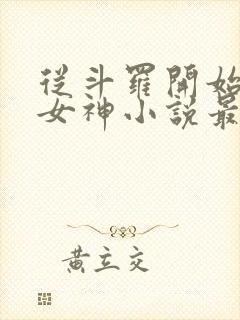 從斗羅開始
女神小說最
黃立交